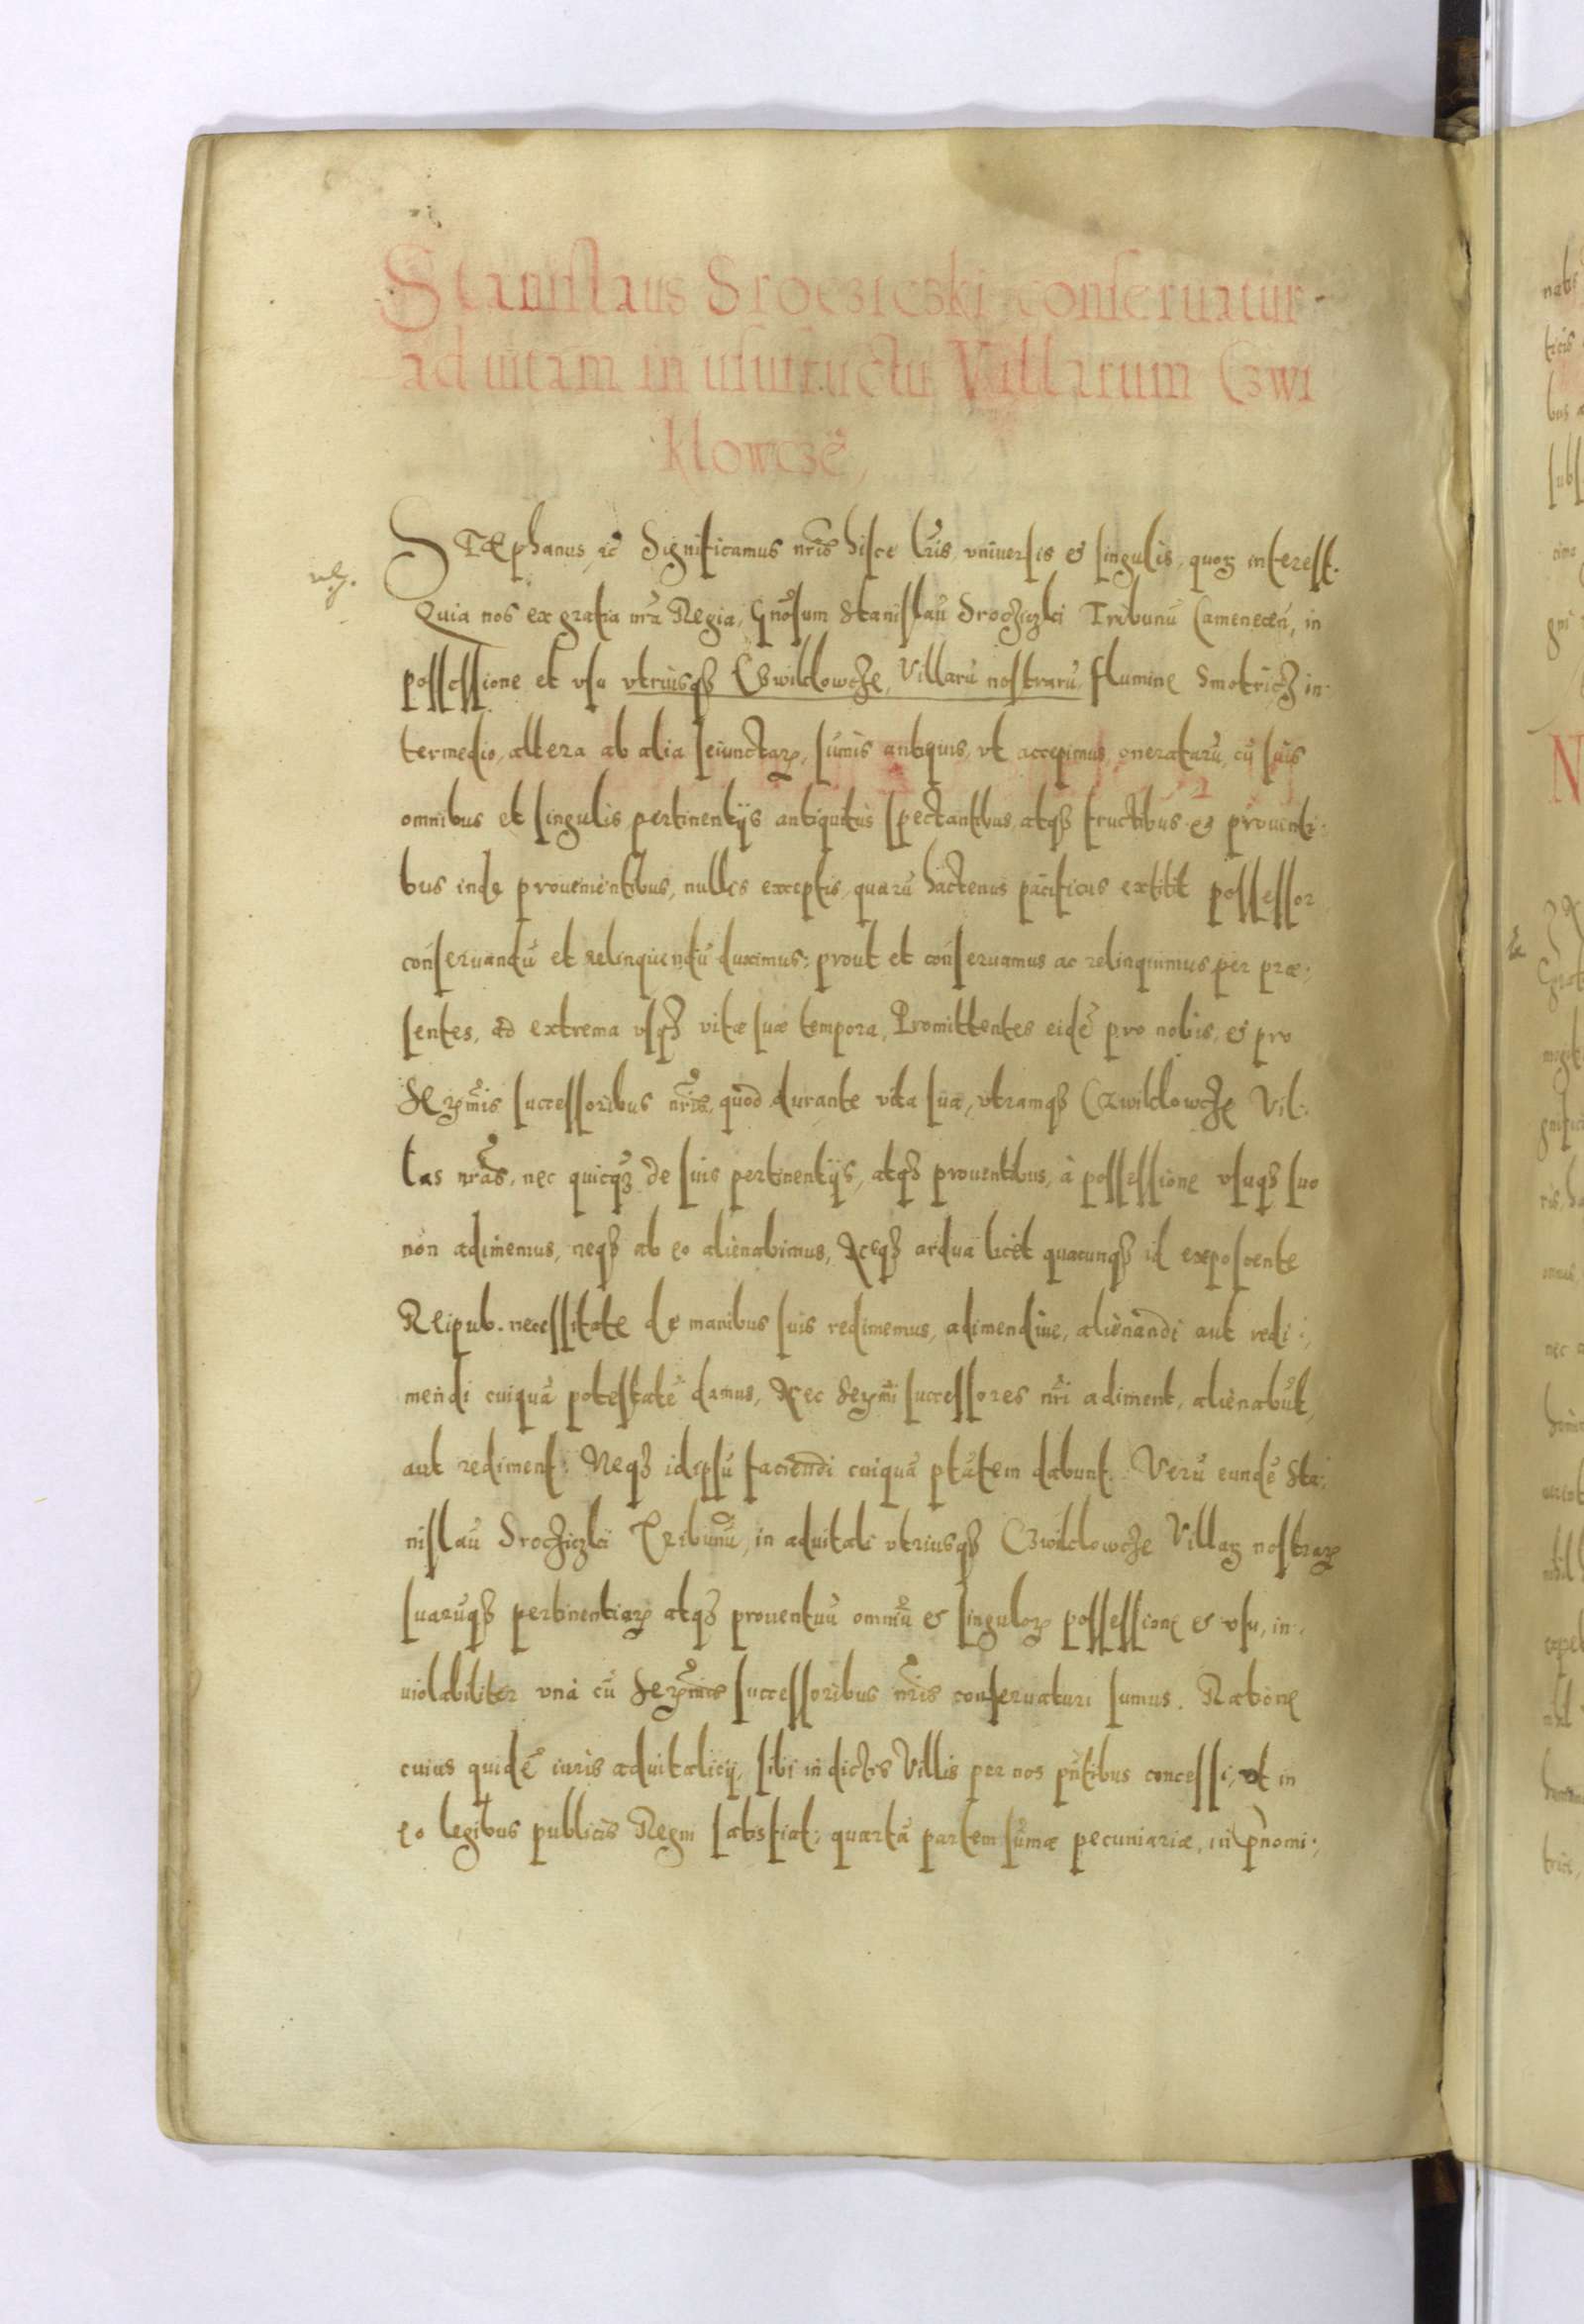 Stanislaus Srocziczki conseruatur
ad uitam in usufructu Villarum Czwi
klowcze,
Stephanus, &c̃ Significamus nr̃is hisce lr̃is, vniuersis et singulis, quoꝝ interest.
Quia nos ex gratia nr̃a Regia, Gñosum Stanislaũ Srocziczki Tribunũ Camenecẽn, in
possessione et vsu vtriusqꝫ Czwiklowcze, Villarũ nostrarũ, flumine Smotricz in
termedio, altera ab alia seiunctaꝝ, sum̃is antiquis, vt accepimus, oneratarũ, cũ suis
omnibus et singulis pertinentijs antiquitùs spectantibus, atqꝫ fructibus et prouenti:
bus inde prouenientibus, nullis exceptis, quarũ hactenus pacificus extitit possessor
conseruandũ et relinquendũ duximus: prout et conseruamus ac relinquimus per præ:
sentes, ad extrema vsqꝫ vitæ suæ tempora, Promittentes eidẽ pro nobis, et pro
Serᵐis successoribus nr̃is, quòd durante vita sua, vtramqꝫ Czwiklowcze Vil:
las nr̃as, nec quicqꝫ de suis pertinentijs, atqꝫ prouentibus, à possessione vsuqꝫ suo
non adimemus, neqꝫ ab eo alienabimus, Neqꝫ ardua licèt quacunqꝫ id exposcente
Reipub. necessitate de manibus suis redimemus, adimendiue, alienandi aut redi:
mendi cuiquã potestatẽ damus, Nec Serᵐi successores nr̃i adiment, alienabũt,
aut rediment: Neqꝫ idipsũ faciendi cuiquã ptãtem dabunt. Verũ eundẽ Sta:
nislaũ Srocziczki Tribunũ, in aduitali vtriusqꝫ Czwiklowcze Villaꝝ nostraꝝ
suarũqꝫ pertinentiaꝝ atqꝫ prouentuũ omniũ et singuloꝝ possessione et vsu, in:
uiolabiliter vnà cũ Serᵐis successoribus nr̃is conseruaturi sumus. Ratione
cuius quidẽ iuris aduitalicij, sibi in dictis Villis per nos pñtibus concessi, vt in
eo legibus publicis Regni satisfiat, quartã partem sum̃æ pecuniariæ, in p̃nomi: